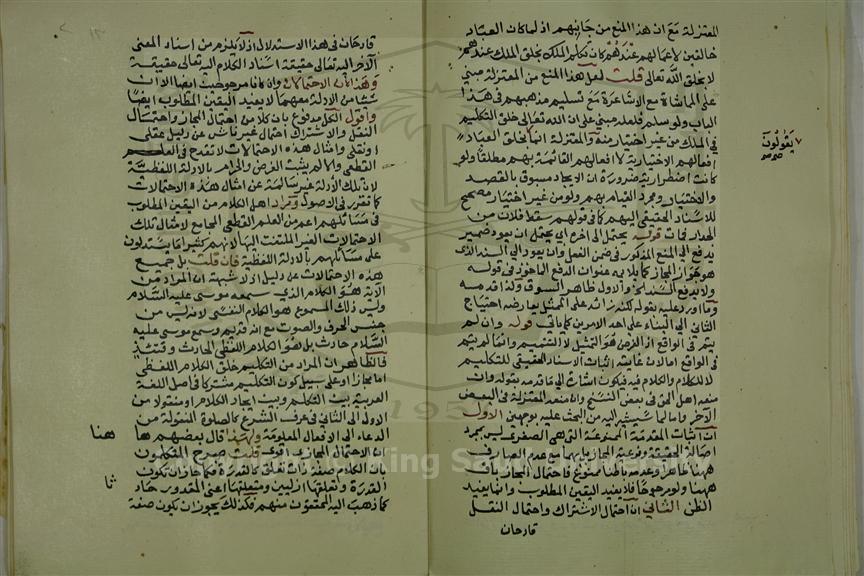 المعتزلة مع ان هذا المنع من جانبهم اذ لما كان العباد
خالقين لاعمالهم عندهم كان تكلم الملك بخلق الملك عندهم
لا بخلق الله تعالى قلت لعل هذا المنع من المعتزلة مبني
على المماشاة مع الاشاعرة مع تسليم مذهبهم في هذا
الباب ولو سلم فلعله مبني على ان الله تعالى خلق التكليم
في الملك من غير اختيار منه والمعتزلة انما بخلق العباد
يقولون
افعالهم الاختيارية لا افعالهم القائمة بهم مطلقا ولو
كانت اضطرارية ضرورة ان الايجاد مسبوق بالقصد
والاختيار ومجرد القيام بهم ولو من غير اختيار مصحح
للاسناد الحقيقي اليهم كما في قولهم سقط فلان من
الجدار فمات قوله يحتمل الى اخره اي يحتمل ان يعود ضمير
يدفع الى المنع المذكور في ضمن الفعل وان يعود الى السند الذي
هو جواز المجاز كما يلايمه عنوان الدفع الماخوذ في قوله
ولا يدفع السند الخ والاول ظاهر السوق ولذا قدمه
وما اورد عليه بقوله لكنه زائد على التمثيل يعارضه احتياج
الثاني الى البناء على احد الامرين كما ياتي قوله وان لم
يتم في الواقع اذ الغرض هو التمثيل لا التتميم وانما لم يتم
في الواقع اما لان غايته اثبات الاسناد الحقيقي للتكليم
لا للكلام والكلام فيه فيكون اشارة الى ما قدمه بقوله وان
منعه اهل الحق في بعض النسخ وان منعه المعتزلة في البعض
الآخر واما لما سيشير اليه من البحث عليه بوجهين الاول
ان اثبات المقدمة الممنوعة التي هي الصغرى ليس بمجرد
اصالة الحقيقة وفرعية المجاز بل بهما مع عدم الصارف
ههنا ظاهرا وعدمه باطنا ممنوع فاحتمال المجاز باق
ههنا ولو مرجوحا فلا يفيد اليقين المطلوب وانما يفيد
الظن الثاني ان احتمال الاشتراك واحتمال النقل
قادحان
قادحان في هذا الاستدلال اذ لا يلزم من اسناد المعنى
الآخر اليه تعالى حقيقة اسناد الكلام اليه تعالى حقيقة
وهذان الاحتمالان وان كانا مرجوحين ايضا الا ان
شيئا من الادلة معهما لا يفيد اليقين المطلوب ايضا
واقول الكل مدفوع بان كلا من احتمال المجاز واحتمال
النقل والاشتراك احتمال غير ناش عن دليل عقلي
او نقلي وامثال هذه الاحتمالات لا تقدح في العلم
القطعي والا لم يثبت الفرض والحرام بالادلة اللفظية
لان تلك الادلة غير سالمة عن امثال هذه الاحتمالات
كما تقرر في الاصول ومراد اهل الكلام من اليقين المطلوب
في مسائلهم اعم من العلم القطعي الجامع لامثال تلك
الاحتمالات الغير الملتفت اليها لانهم كثيرا ما يستدلون
على مسائلهم بالادلة اللفظية فان قلت بل جميع
هذه الاحتمالات عن دليل اذ لا شبهة ان المراد من
الآية هو الكلام الذي سمعه موسى عليه السلام
وليس ذلك المسموع هو الكلام النفسي لانه ليس من
جنس الحرف والصوت مع انه قديم وسمع موسى عليه
السلام حادث بل هو الكلام اللفظي الحادث وحينئذ
فالظاهر ان المراد من التكليم خلق الكلام اللفظي
اما مجازا او على سبيل كون التكليم مشتركا في اصل اللغة
العربية بين التكلم وبين ايجاد الكلام او منقولا من
الاول الى الثاني في عرف الشرع كالصلوة المنقولة من
الدعاء الى الافعال المعلومة ولهذا قال بعضهم ها
هنا
ان الاحتمال المجازي قوي قلت صرح المتكلمون
بان الكلام صفة ذات تعلق كالقدرة فكما جاز ان تكون
القدرة وتعلقها ازليين ومتعلقها اعني المقدور حاد
ثا
كما ذهب اليه المحققون منهم فكذلك يجوز ان يكون صفة